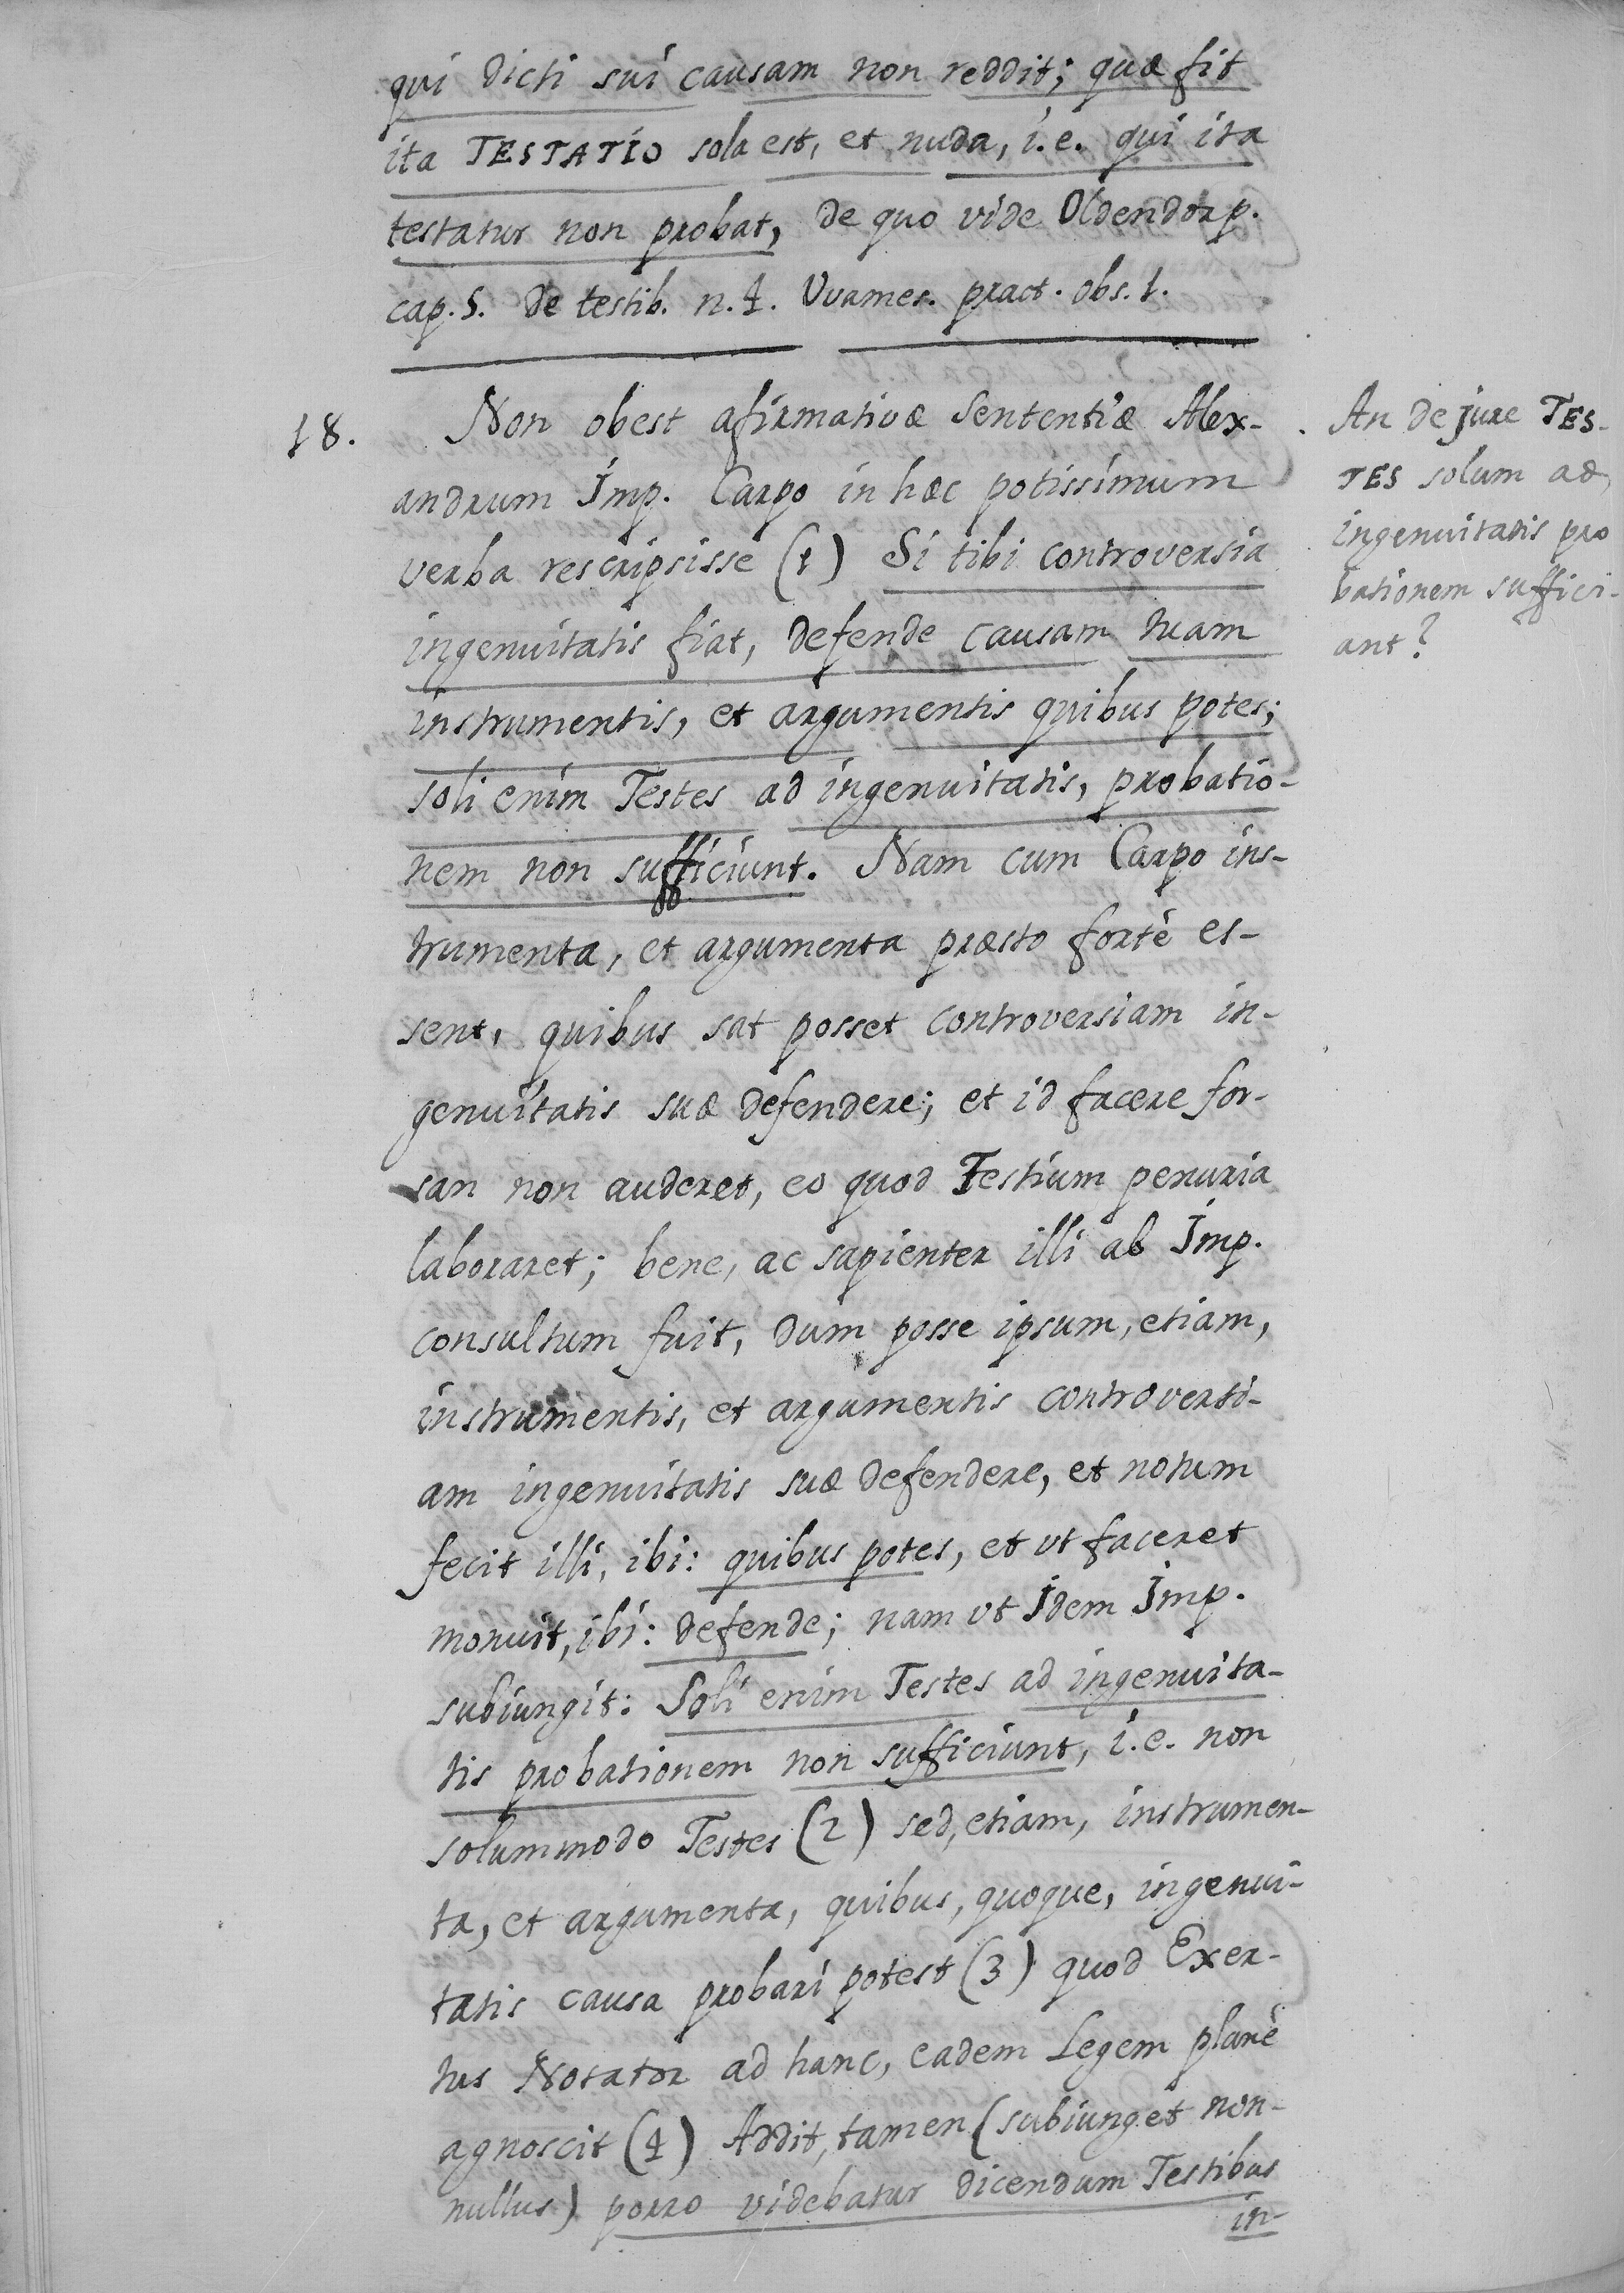 qui dicti sui causam non reddit; quæ fit
ita TESTATIO sola est, et nuda, i.e. qui ita
testatur non probat, de quo vide Oldendorp.
cap. 5. de testib. n. 4. Vvames. pract. obs. 1.
18. Non obest afirmativæ sententiæ Alex-
andrum Imp. Carpo in hæc potissimum
verba rescripsisse (1) Si tibi controversia
ingenuitatis fiat, defende causam tuam
instrumentis, et argumentis quibus potes;
soli enim Testes ad ingenuitatis, probatio-
nem non sufficiunt. Nam cum Carpo ins-
trumenta, et argumenta præsto fortè es-
sent, quibus sat posset controversiam in-
genuitatis suæ defendere; et id facere for-
san non auderet, eo quod Testium penuria
laboraret; bene, ac sapienter illi ab Imp.
consultum fuit, dum posse ipsum, etiam,
instrumentis, et argumentis controversi-
am ingenuitatis suæ defendere, et notum
fecit illi, ibi: quibus potes, et vt faceret
monuit, ibi: defende; nam vt Idem Imp.
subiungit: Soli enim Testes ad ingenuita-
tis probationem non sufficiunt, i.e. non
solummodo Testes (2) sed, etiam, instrumen-
ta, et argumenta, quibus, quoque, ingenui-
tatis causa probari potest (3) quod Exer-
tus Notator ad hanc, eadem Legem planè
agnoscit (4) Addit, tamen (subiunget non-
nullus) porro videbatur dicendum Testibus
in-
An de jure TES-
TES solum ad
ingenuitatis pro
bationem suffici-
ant?